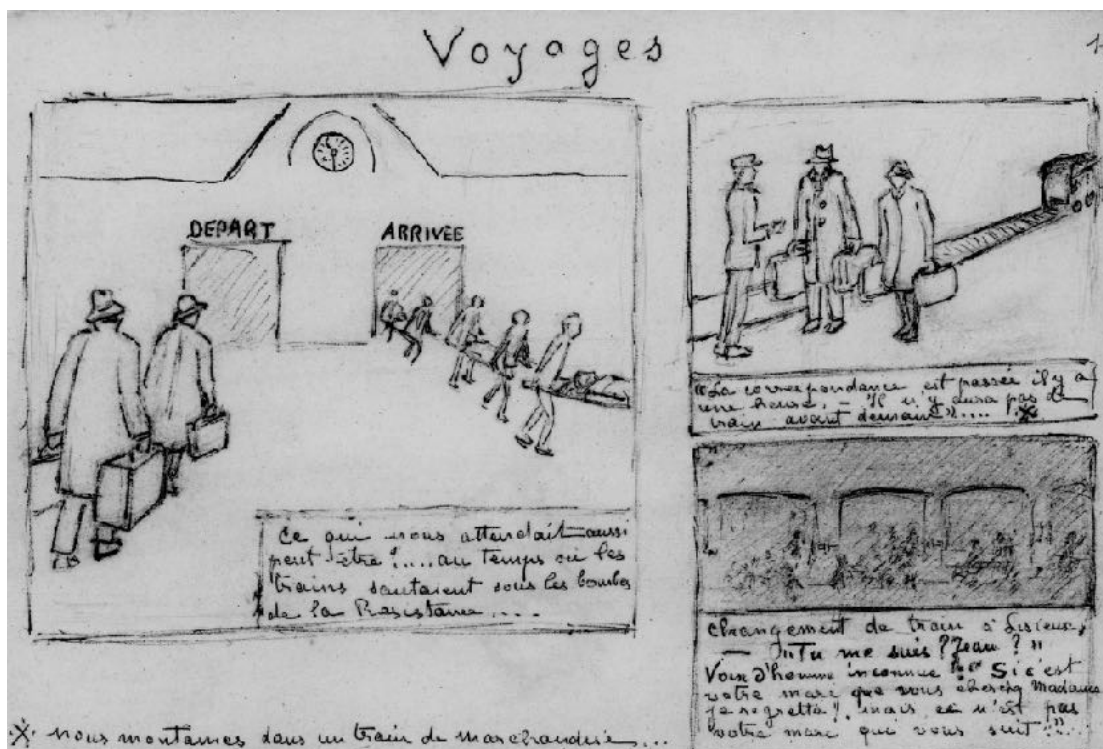 Voyages
1
DEPART
ARRIVÉE
Ce qui nous attendait aussi
peut être !.... au temps où les
trains sautaient sous les bombes
de la Résistance....
"La correspondance est passée il y a
une heure, - Il n'y aura pas de
train avant demain".... ※
changement de train à Lisieux,
— "Tu me suis ? Jean ? "
Voix d'homme inconnue : " Si c'est
votre mari que vous cherchez Madame
je regrette ! mais ce n'est pas
votre mari qui vous suit "!...
※ nous montames dans un train de marchandise...